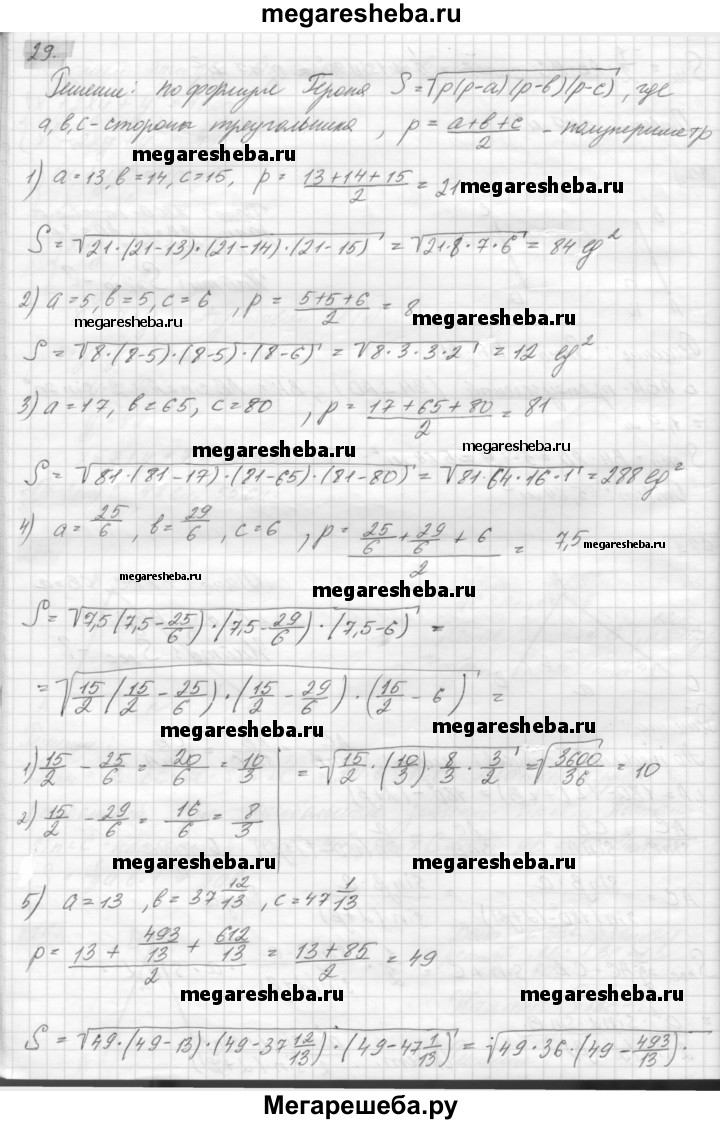 megaresheba.ru
29.
Решение: по формуле Герона S = √p(p-a)(p-в)(p-c), где
a, в, c - стороны треугольника, p = (a+в+c)/2 - полупериметр
megaresheba.ru
1) a=13, в=14, c=15, p = (13+14+15)/2 = 21 megaresheba.ru
S = √21·(21-13)·(21-14)·(21-15) = √21·8·7·6 = 84 eg²
2) a=5, в=5, c=6, p = (5+5+6)/2 = 8
megaresheba.ru megaresheba.ru
S = √8·(8-5)·(8-5)·(8-6) = √8·3·3·2 = 12 eg²
3) a=17, в=65, c=80, p = (17+65+80)/2 = 81
megaresheba.ru megaresheba.ru
S = √81·(81-17)·(81-65)·(81-80) = √81·64·16·1 = 288 eg²
4) a = 25/6, в = 29/6, c=6, p = (25/6 + 29/6 + 6)/2 = 7,5 megaresheba.ru
megaresheba.ru megaresheba.ru
S = √7,5(7,5 - 25/6)·(7,5 - 29/6)·(7,5-6) =
= √15/2 (15/2 - 25/6)·(15/2 - 29/6)·(15/2 - 6) =
megaresheba.ru
1) 15/2 - 25/6 = 20/6 = 10/3 | = √15/2·(10/3)·8/3·3/2 = √3600/36 = 10
2) 15/2 - 29/6 = 16/6 = 8/3
megaresheba.ru megaresheba.ru
5) a=13, в=37 12/13, c=47 1/13
p = (13 + 493/13 + 612/13)/2 = (13+85)/2 = 49
megaresheba.ru megaresheba.ru
S = √49·(49-13)·(49-37 12/13)·(49-47 1/13) = √49·36·(49 - 493/13)·
Мегарешеба.ру